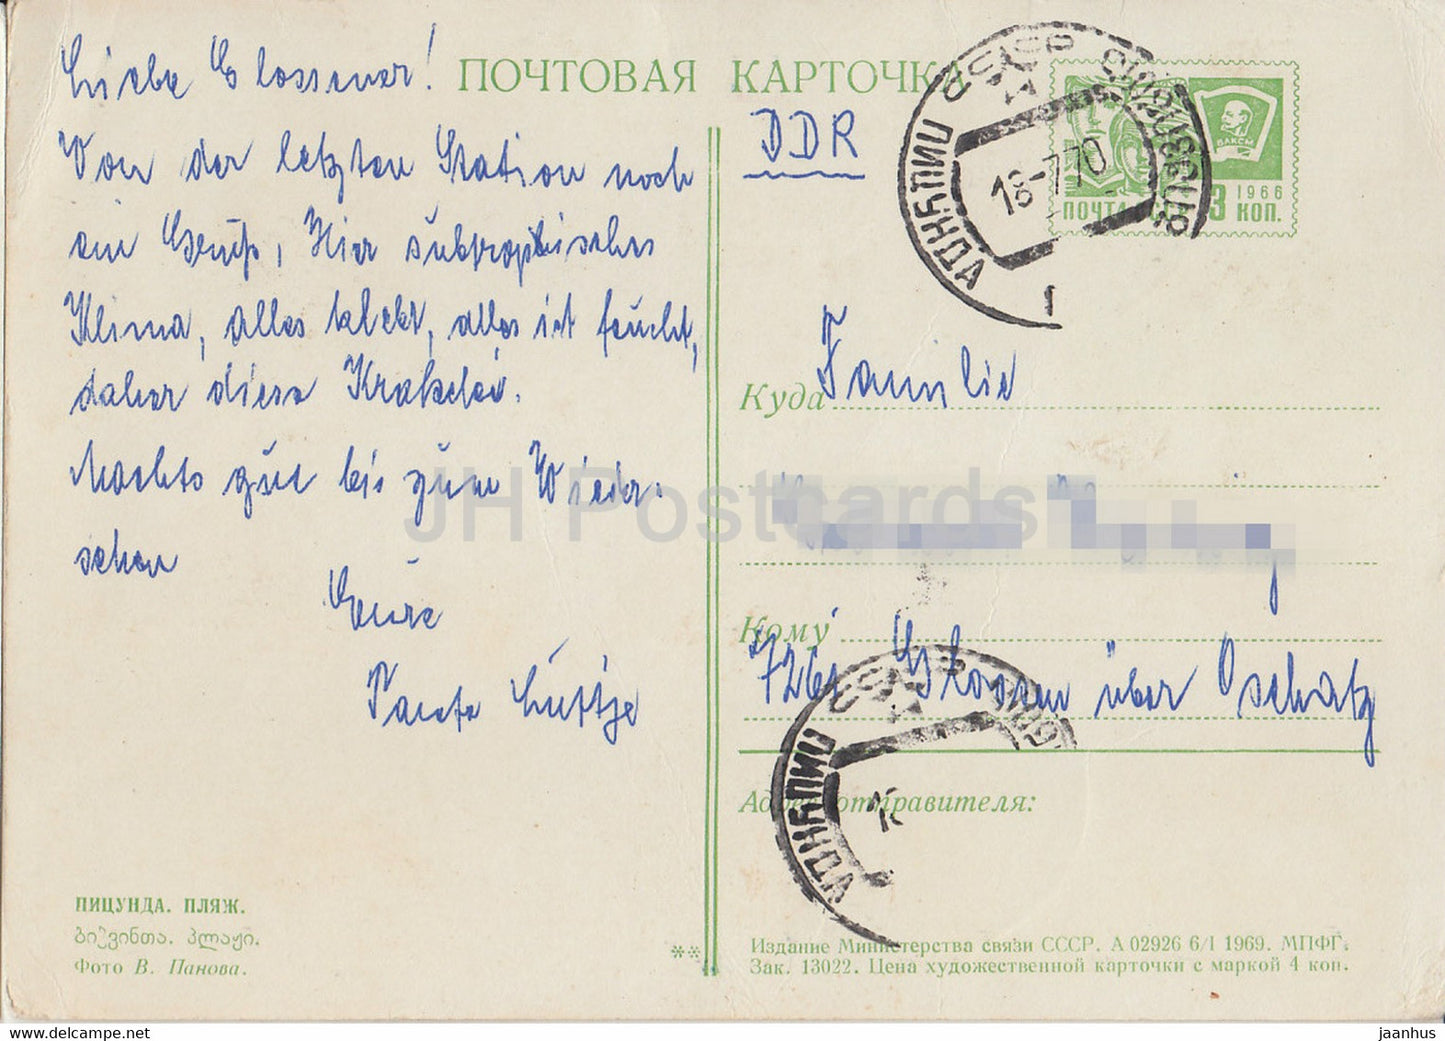 ПОЧТОВАЯ КАРТОЧКА
Liebe Glossener!
Von der letzten Station noch
ein Gruß, Hier subtropisches
Klima, alles klebt, alles ist feucht,
daher diese Krakelei.
Machts gut bis zum Wieder-
sehen
Eure
Tante Lüttje
DDR
ПОЧТА
3 КОП.
1966
ВЛКСМ
18-7 70
Куда Familie
Кому
7261 Glossen über Oschatz
Адрес отправителя:
ПИЦУНДА. ПЛЯЖ.
ბიჭვინთა. პლაჟი.
Фото В. Панова.
**
Издание Министерства связи СССР. А 02926 6/I 1969. МПФГ.
Зак. 13022. Цена художественной карточки с маркой 4 коп.
JH Postcards
www.delcampe.net
jaanhus